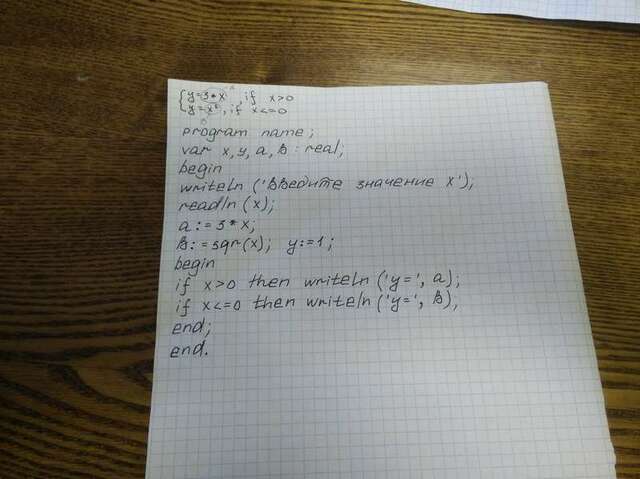 {y=3*x, if x>0
y=x², if x<=0
program name;
var x,y,a,b : real;
begin
writeln ('Введите значение x');
readln (x);
a:=3*x;
b:=sqr(x); y:=1;
begin
if x>0 then writeln ('y=', a);
if x<=0 then writeln ('y=', b);
end;
end.